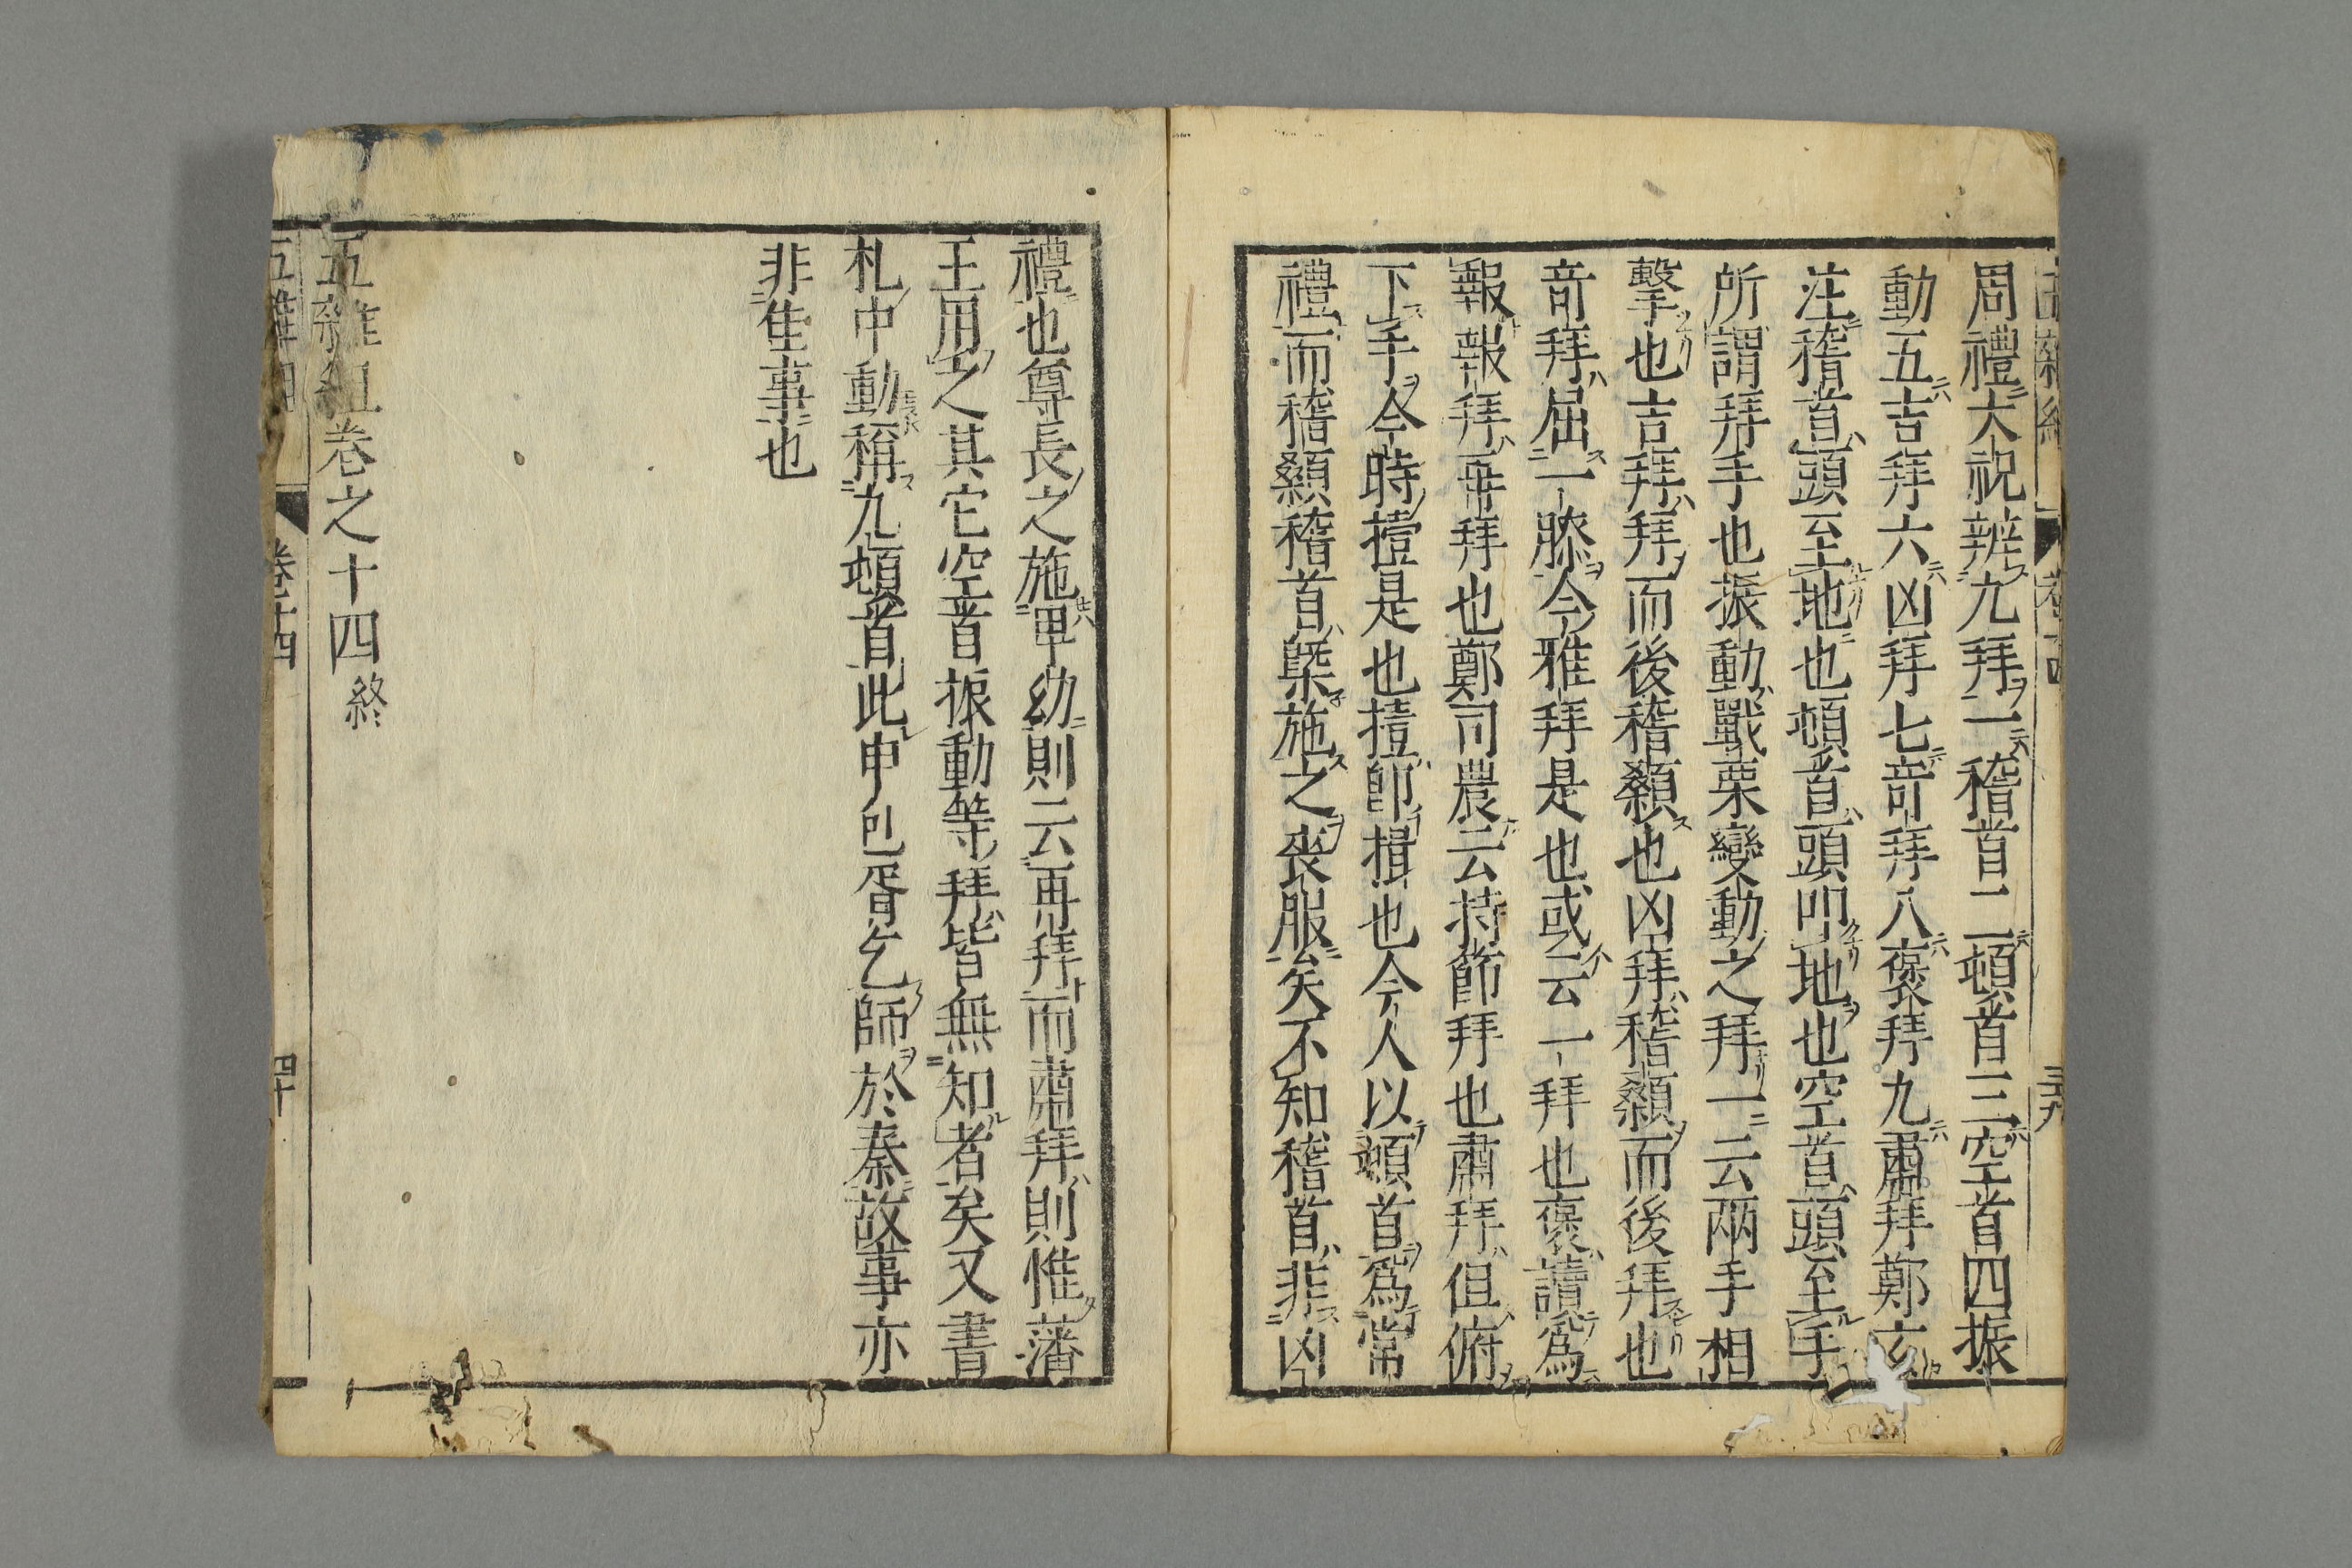 周禮大祝辨九拜一稽首二頓首三空首四振
動五吉拜六凶拜七竒拜八褒拜九肅拜鄭玄
注稽首頭至地也頓首頭叩地也空首頭至手
所謂拜手也振動戰栗變動之拜一云兩手相
擊也吉拜拜而後稽顙也凶拜稽顙而後拜也
竒拜屈一膝今雅拜是也或云一拜也褒讀爲
報報拜再拜也鄭司農云持節拜也肅拜但俯
下手今時撎是也撎卽揖也今人以頓首爲常
禮而稽顙稽首槩施之喪服矣不知稽首非凶
三十九
禮也尊長之施卑幼則云再拜而肅拜則惟藩
王用之其它空首振動等拜皆無知者矣又書
札中動稱九頓首此申包胥乞師於秦故事亦
非隹事也
五雜組卷之十四終
五雜組
卷十四
四十